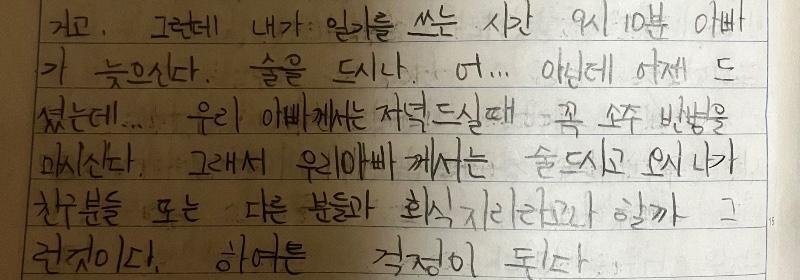 거고. 그런데 내가 일기를 쓰는 시간 9시 10분 아빠
가 늦으신다. 술을 드시나. 어... 아닌데 어제 드
셨는데... 우리 아빠께서는 저녁 드실때 꼭 소주 반병을
마시신다. 그래서 우리아빠 께서는 술드시고 오시나가
친구분들 또는 다른 분들과 회식 지리라고나 할까 그
런것이다. 하여튼 걱정이 된다...